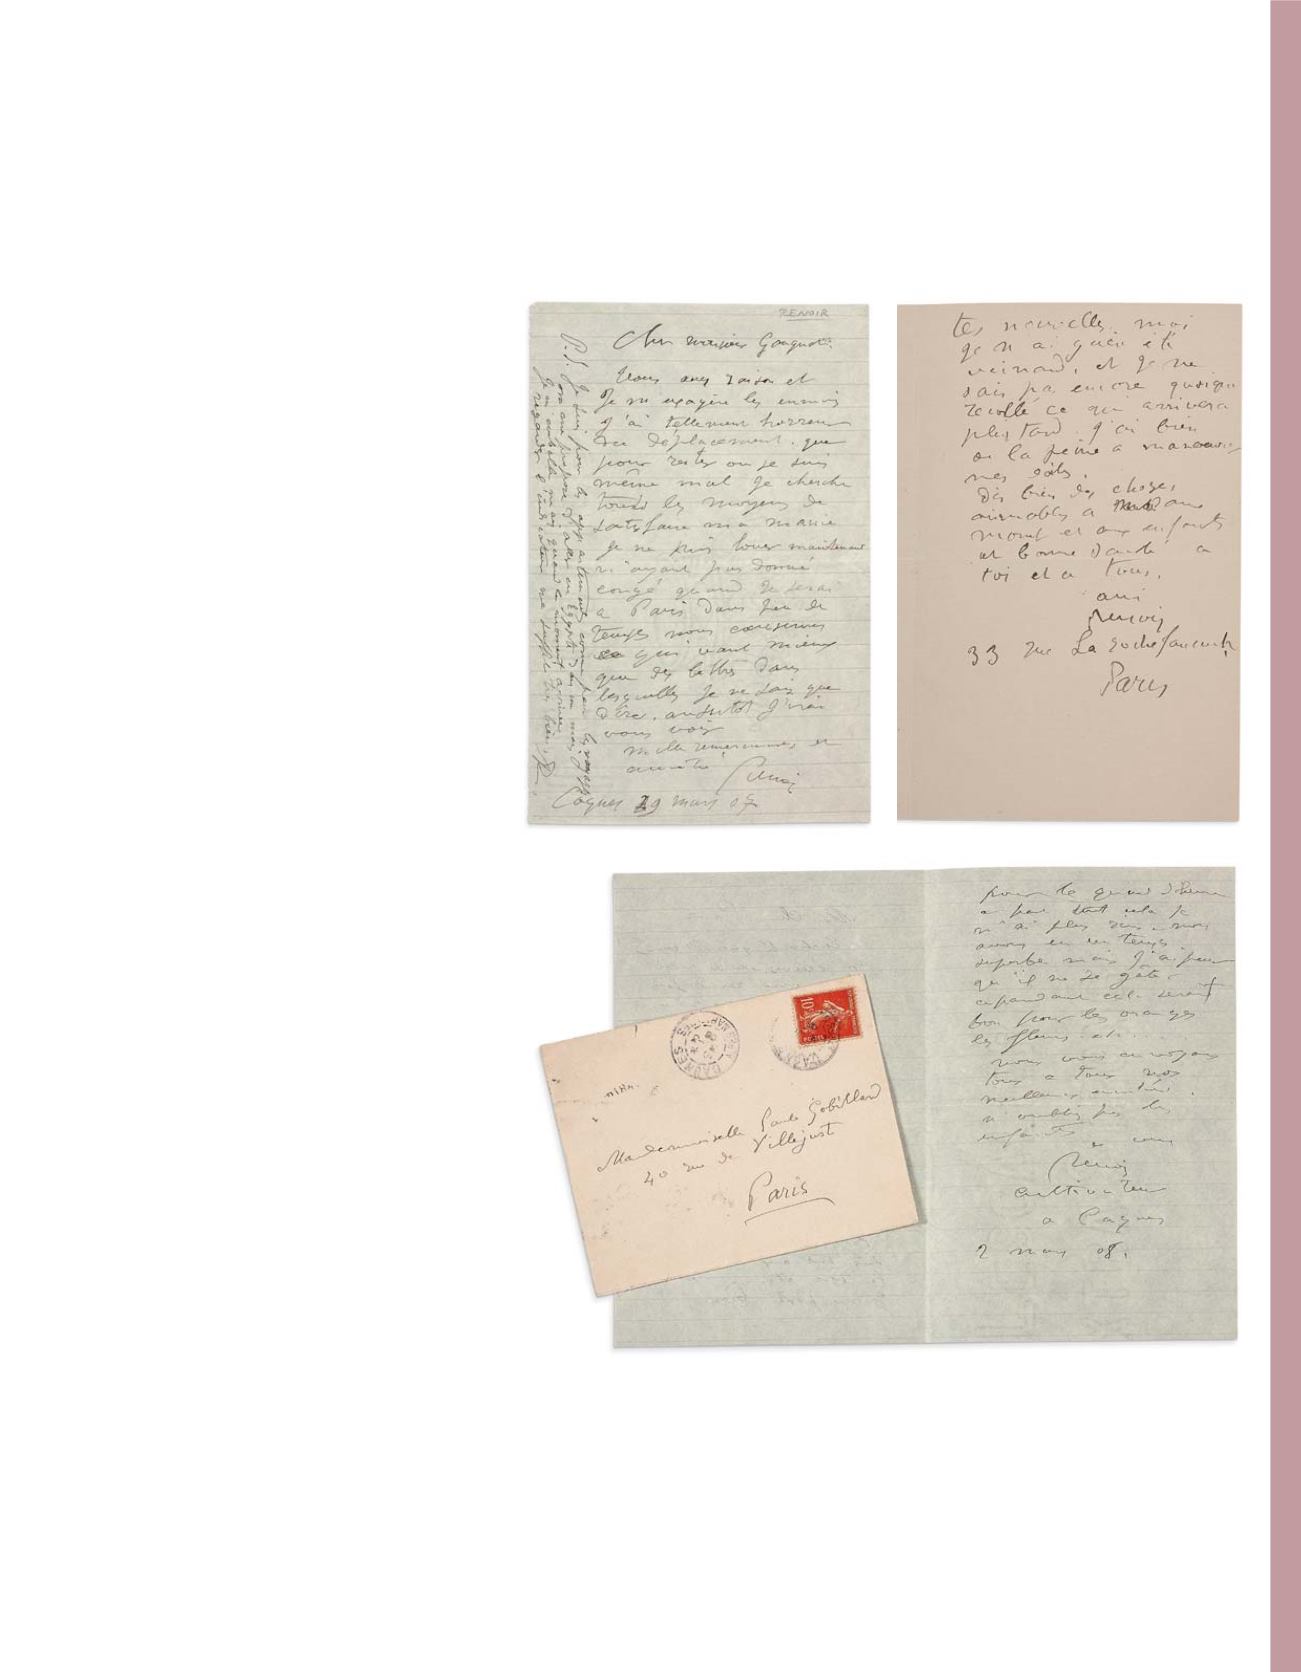 RENOIR
Cher monsieur Gangnat.
Vous avez raison et
Je m'exagère les ennuis
J'ai tellement horreur
du déplacement. que
pour rester ou je suis
même mal je cherche
tous les moyens de
satisfaire ma manie
Je ne puis louer maintenant
n'ayant pas donné
congé quand Je serai
a Paris dans peu de
temps nous causerons
ce qui vaut mieux
que des lettres dans
lesquelles Je ne sais que
dire. aussitôt J'irai
vous voir
mille remerciements et
amitiés
Renoir
Cagnes 29 mars 07
P.S. Je suis pour les appartements comme pour les voyages
on me propose d'aller en Egypte
Je m'emballe mais quand le moment arrive
regarder l'indicateur me suffit très bien. R
tes nouvelles. moi
je n'ai guère été
veinard. et je ne
sais pas encore quoique
recollé ce qui arrivera
plus tard. j'ai bien
de la peine a manoeuvrer
mes
dis bien des choses
aimables a Madame
et aux enfants
et bonne santé a
toi et a tous.
ami
Renoir
33 rue La Rochefoucauld
Paris
pour le quart d'heure
a part tout cela je
n'ai plus rien. nous
avons eu un temps
superbe mais j'ai peur
qu'il ne se gâte.
cependant cela serait
bon pour les oranges
les fleurs etc...
nous vous envoyons
tous a tous nos
meilleures amitiés.
n'oubliez pas les
enfants
a vous
Renoir
cultivateur
a Cagnes
2 mars 08.
10
CAGNES
Mademoiselle Paule Gobillard
40 rue de Villejust
Paris